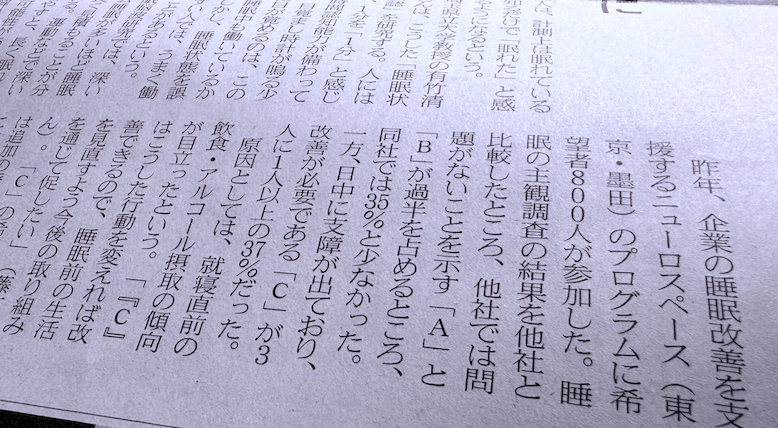 昨年、企業の睡眠改善を支
援するニューロスペース（東
京・墨田）のプログラムに希
望者800人が参加した。睡
眠の主観調査の結果を他社と
比較したところ、他社では問
題がないことを示す「A」と
「B」が過半を占めるところ、
同社では35%と少なかった。
一方、日中に支障が出ており、
改善が必要である「C」が3
人に1人以上の37%だった。
原因としては、就寝直前の
飲食・アルコール摂取の傾向
が目立ったという。「『C』
はこうした行動を変えれば改
善できるので、睡眠前の生活
を見直すよう今後の取り組み
を通じて促したい」（
ん）。「C」の
は追加の
人、計測上は眠れている
だけで「眠れた」と感
ようになるという。
県立大学教授の有竹清
は、こうした「睡眠状
」を研究する。人には
1分を「1分」と感じ
時間認知能力が備わって
目覚まし時計が鳴る少
目が覚めるのは、この
睡眠中も働いているか
しかし、不眠
い人は、うまく働
睡眠状態を誤
ことがあるという。
研究では、深い
多いほど睡眠
積もることが分
運動などで深い